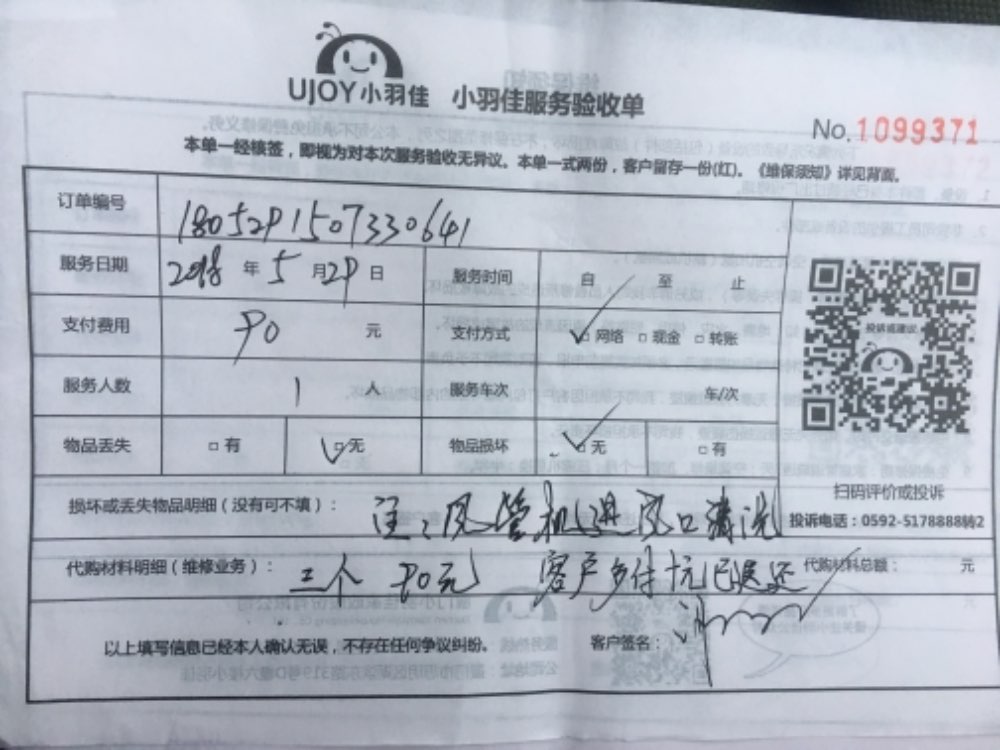 UJOY小羽佳 小羽佳服务验收单
No.1099371
本单一经核签，即视为对本次服务验收无异议。本单一式两份，客户留存一份(红)。《维保须知》详见背面。
订单编号 180529150733​0641
服务日期 2018 年 5 月 29 日 服务时间 自 至 止
支付费用 90 元 支付方式 ☑网络 □现金 □转账
投诉或建议
服务人数 1 人 服务车次 车/次
物品丢失 □有 ☑无 物品损坏 ☑无 □有
扫码评价或投诉
损坏或丢失物品明细（没有可不填）： 注：风管机进风口清洗
投诉电话：0592-5178888转2
代购材料明细（维修业务）： 三个 90元 客户多付 元已退还 代购材料总额： 元
以上填写信息已经本人确认无误，不存在任何争议纠纷。 客户签名：